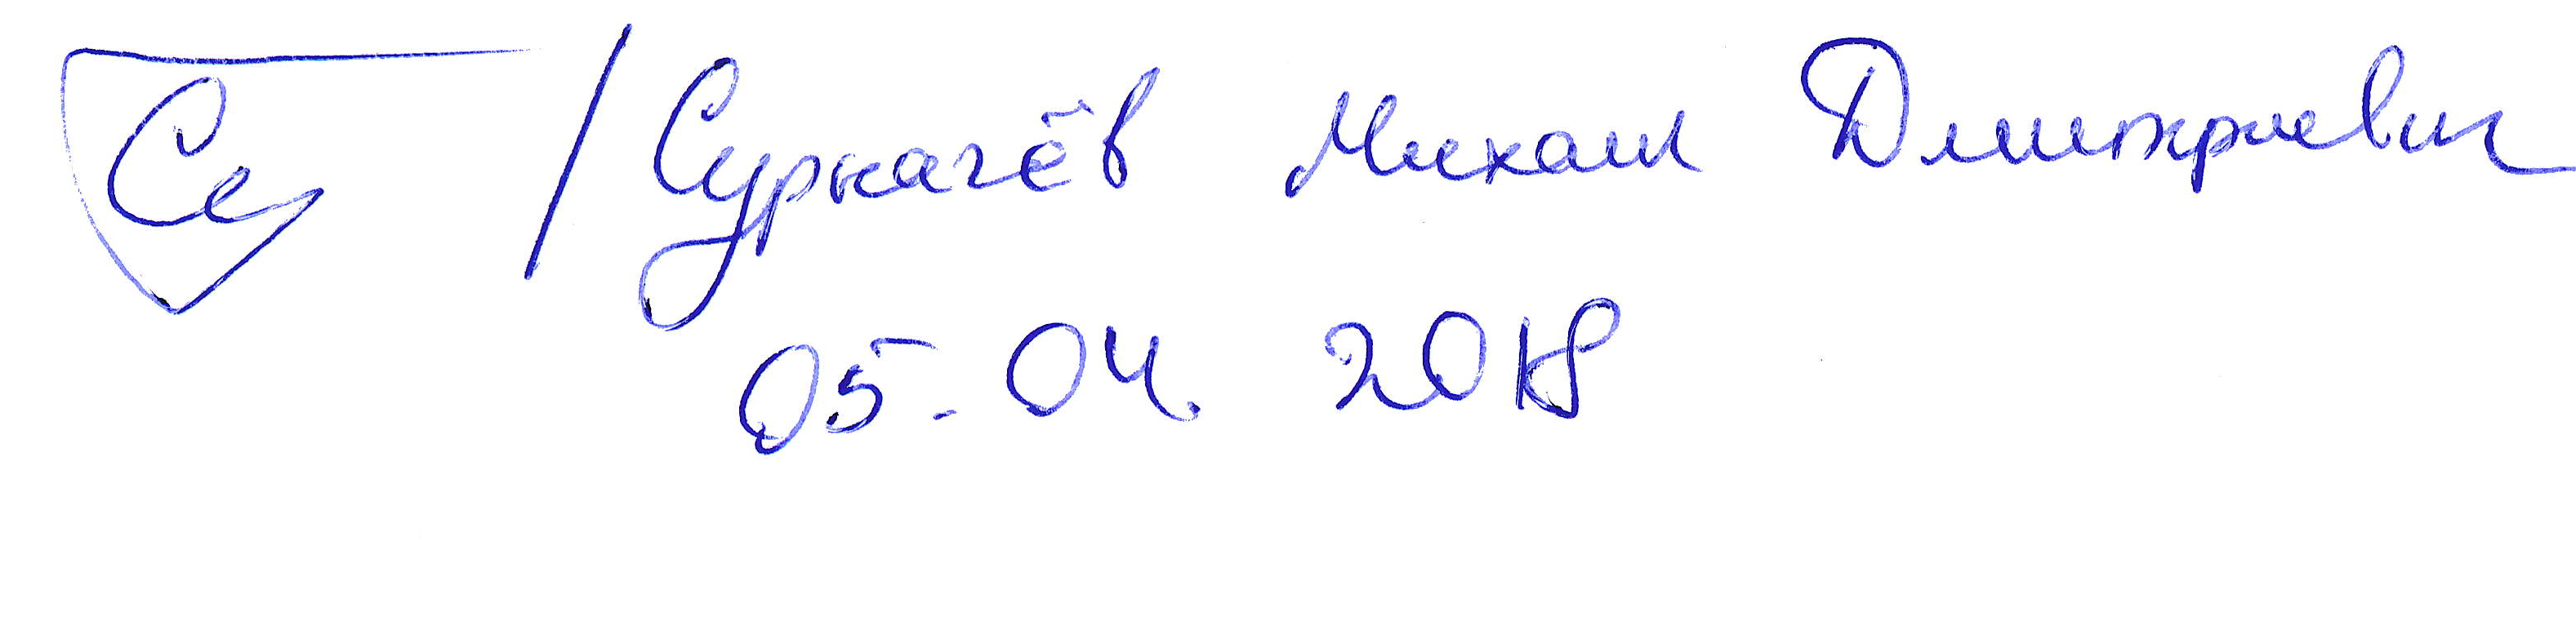 / Суркачёв Михаил Дмитриевич
05.04.2018